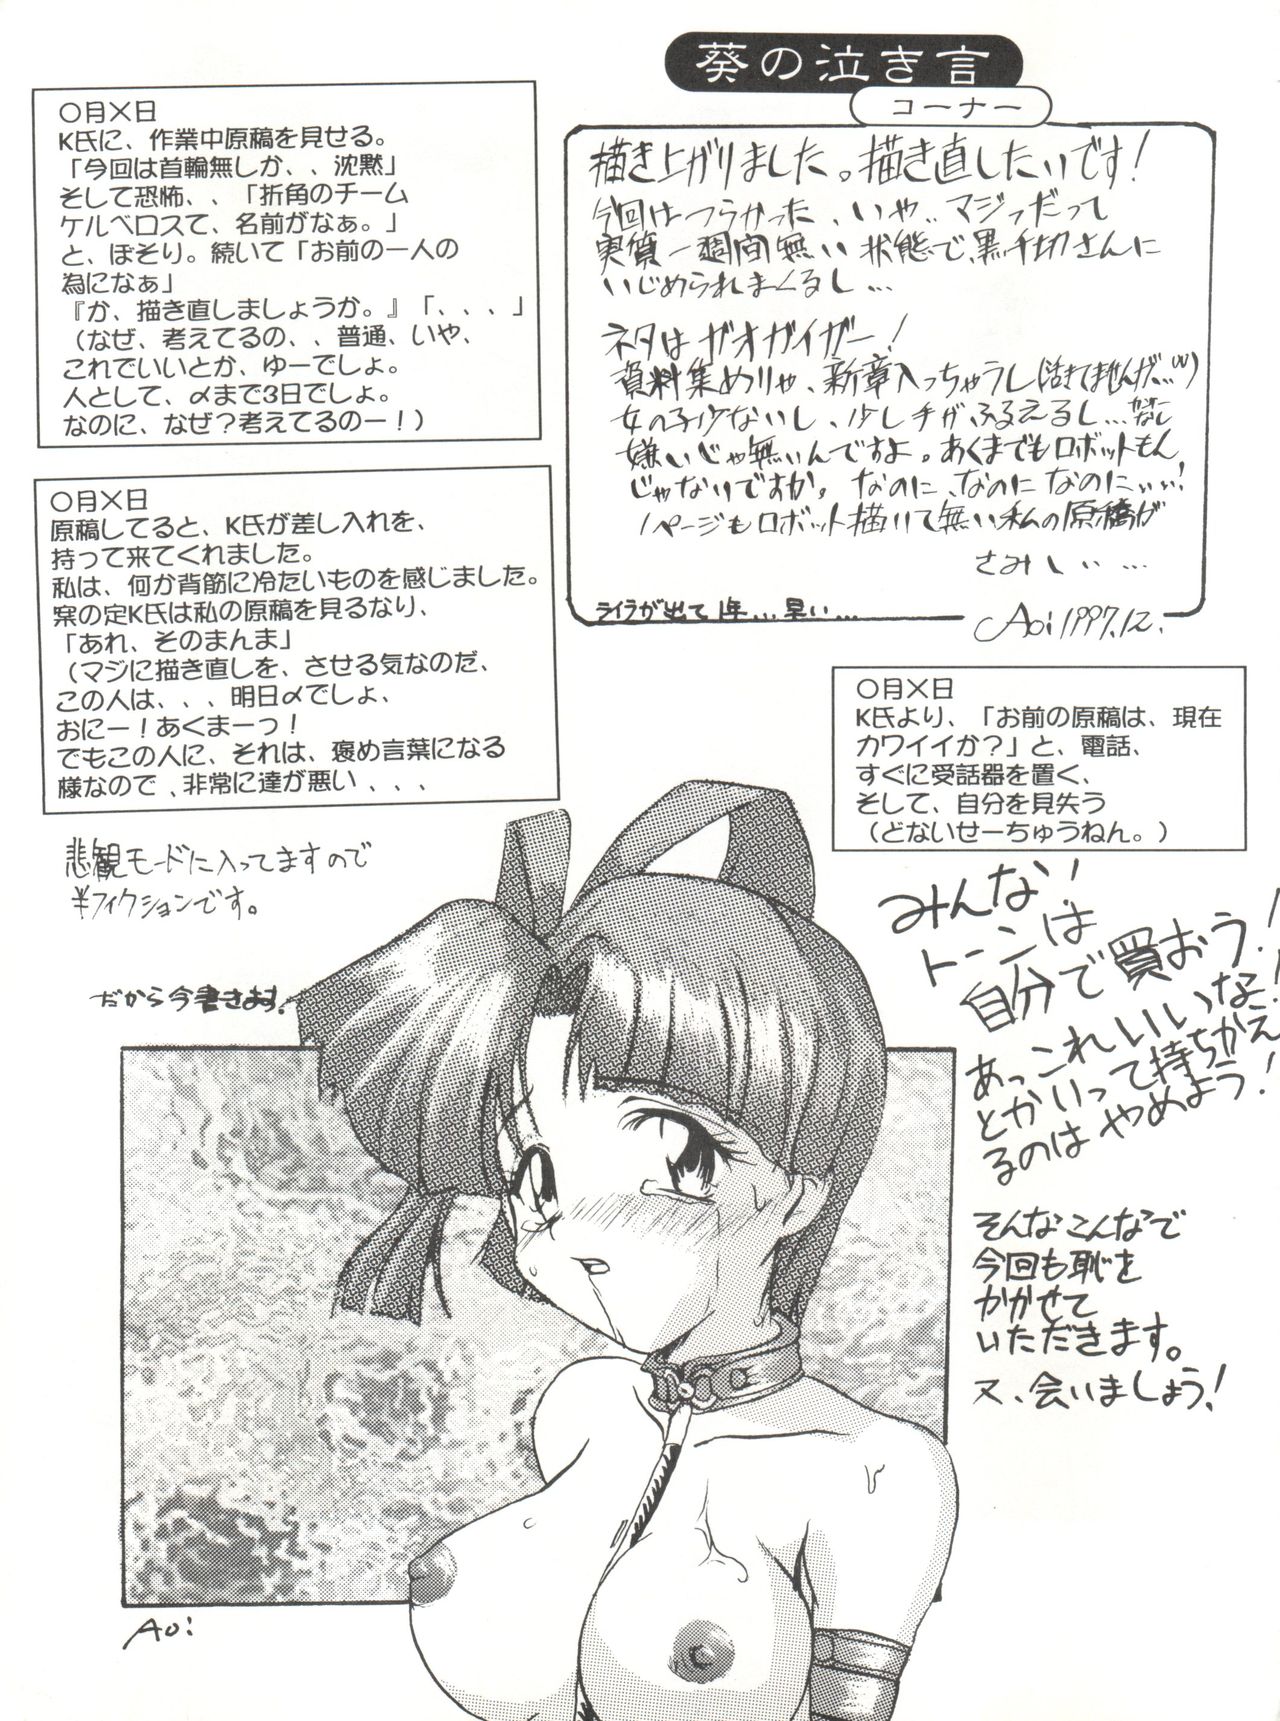 葵の泣き言
コーナー
描き上がりました。描き直したいです！
今回はつらかった、いや、マジっだって
実質一週間無い状態で、黒千切さんに
いじめられまくるし…
ネタはガオガイガー！
資料集めりゃ、新章入っちゃうし(泣きてませんげ…
女の子少ないし、少し手がふるえるし…
嫌いじゃ無いんですよ。あくまでもロボットもん
じゃないですか。なのに、なのになのにぃぃ！
1ページもロボット描いて無い私の原稿が
さみしぃ…
ライラが出て1年…早い…
Aoi 1997.12.
〇月×日
K氏に、作業中原稿を見せる。
「今回は首輪無しか、、沈黙」
そして恐怖、、「折角のチーム
ケルベロスて、名前がなぁ。」
と、ぼそり。続いて「お前の一人の
為になぁ」
『か、描き直しましょうか。』「、、、」
（なぜ、考えてるの、、普通、いや、
これでいいとか、ゆーでしょ。
人として、〆まで3日でしょ。
なのに、なぜ？考えてるのー！）
〇月×日
原稿してると、K氏が差し入れを、
持って来てくれました。
私は、何か背筋に冷たいものを感じました。
案の定K氏は私の原稿を見るなり、
「あれ、そのまんま」
（マジに描き直しを、させる気なのだ、
この人は、、、明日〆でしょ、
おにー！あくまーっ！
でもこの人に、それは、褒め言葉になる
様なので、非常に達が悪い、、、
〇月×日
K氏より、「お前の原稿は、現在
カワイイか？」と、電話、
すぐに受話器を置く、
そして、自分を見失う
（どないせーちゅうねん。）
悲観モードに入ってますので
半フィクションです。
だから今書きます。
みんな！
トーンは
自分で買おう！
あっこれいいな！
とかいって持ちかえ
るのはやめよう！
そんなこんなで
今回も恥を
かかせて
いただきます。
又、会いましょう！
Aoi